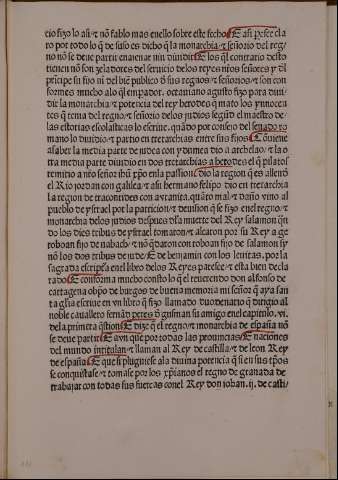 cio fizo lo asi: ⁊ nõ fablo mas en ello sobre este fecho. E asi pesce cla
ro por todo lo q̃ de suso es dicho q̃ la monarchia ⁊ señorio del reg/
no nõ se deue partir enajenar nin diuidir. E los q̃l contrario desto
touieren nõ son zeladores del seruicio de los reyes nr̃os señores y dl
prĩcipe su fijo ni del biẽ publico d̃ sus regnos ⁊ señorios: ⁊ son con
formes mucho alo q̃l emperador octauiano agusto fizo para diui
dir la monarchia ⁊ potencia del rey herodes q̃ mato los ynnocen
tes q̃ tenia del regno ⁊ señorio de los judios segũd el maestro de
las estorias escolasticas lo escriue. quãdo por consejo del senado ro
mano lo diuidio ⁊ partio en tetrarchias entre sus fijos. Cõuiene
asaber la media parte de iudea con ydumea dio a archelao: ⁊ la o
tra media parte diuidio en dos tetrarchias a herodes el q̃ pilatos
remitio a nr̃o señor ihũ xp̃o en la passion: dio la region q̃ es allẽd
el Rio jordan con galilea: ⁊ asu hermano felipo dio en tetrarchia
la region de traconides con
pueblo de ysrael por la particion ⁊ deuision q̃ se fizo en el regno ⁊
monarcha delos judios despues dl̃a muerte del Rey salamon q̃n
do los dies tribus de ysrael tomaron ⁊ alcaron por su Rey a ge
roboan fijo de nabach: ⁊ nõ q̃daron con roboan fijo de salamon sy
nõ los dos tribus de iuda: ⁊ de benjamin con los leuitas. por la
sagrada escript̃a en el libro delos Reyes paresce: ⁊ esta bien decla
rado. E conforma mucho con esto lo q̃ el reuerendo don alfonso de
cartagena ob̃po de burgos de buena memoria mi señor q̃ aya san
ta gl̃ia escriue en vn libro q̃ fizo llamado duodenario q̃ dirigio al
noble cauallero fernãd peres d̃ gusman su amigo en el capitulo .vi.
dela primera q̃stion. E dize q̃ el regno ⁊ monarchia de españa nõ
se deue partir. E avn que por todas las prouincias: E naciones
del mundo intitulan ⁊ llaman al Rey de castilla ⁊ de leon Rey
de españa. E que si pluguiese ala diuina potencia q̃ si en sus tp̃os
se conquistase ⁊ tomase por los xp̃ianos el regno de granada de
trabajar con todas sus fuercas con el Rey don johan .ij. de casti/